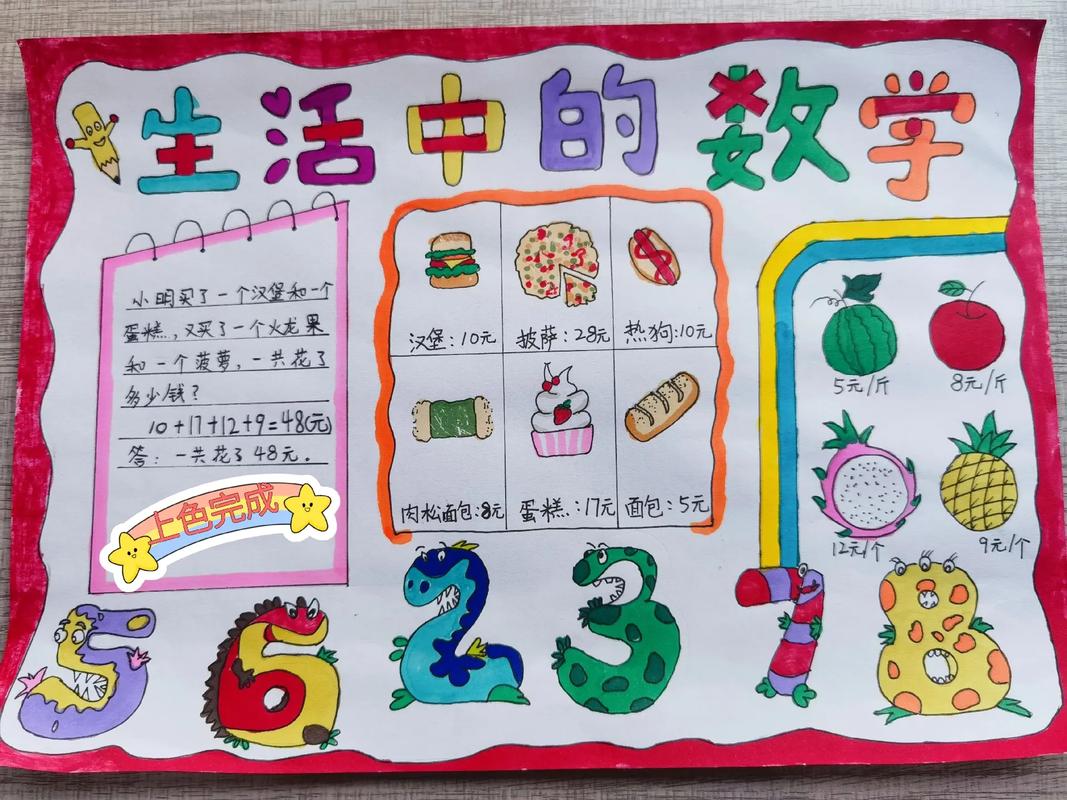 生活中的数学
小明买了一个汉堡和一个
蛋糕,又买了一个火龙果
和一个菠萝,一共花了
多少钱?
10+17+12+9=48(元)
答:一共花了48元.
上色完成
汉堡:10元
披萨:28元
热狗:10元
肉松面包:8元
蛋糕:17元
面包:5元
5元/斤
8元/斤
12元/个
9元/个
5 6 2 3 7 8